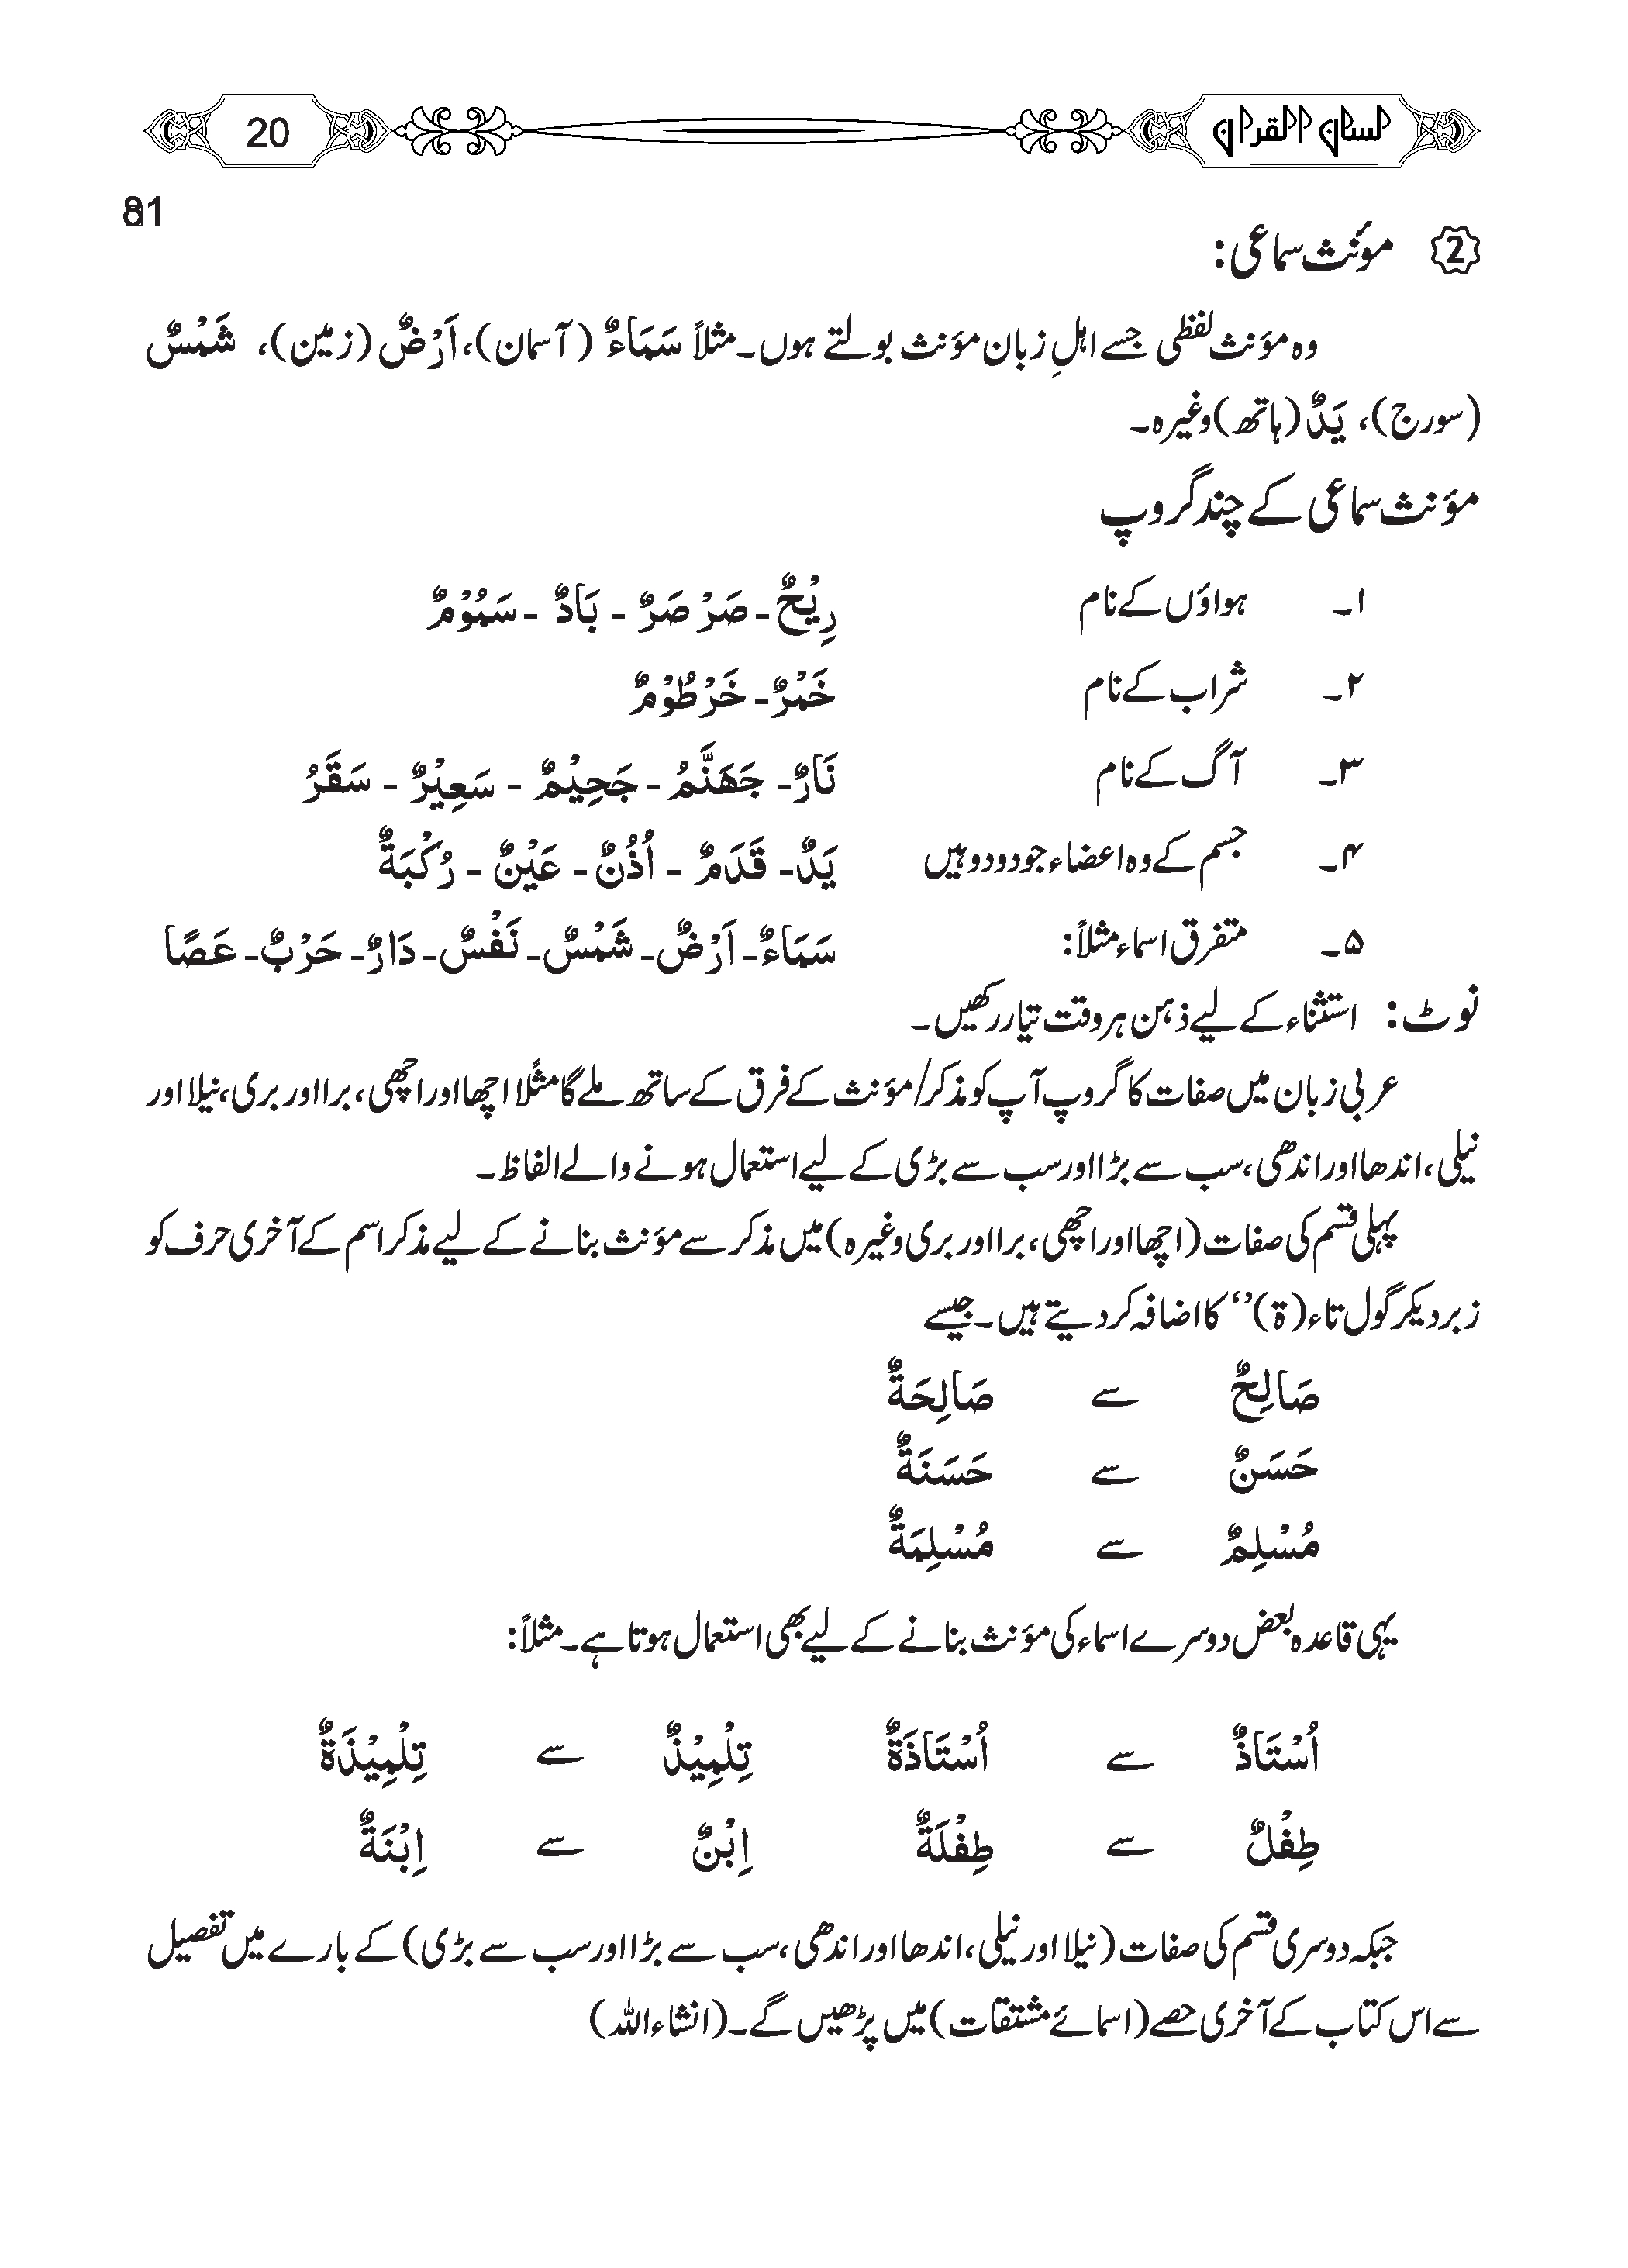 لسان القرآن 20
81
2 مؤنث سماعی:
وہ مؤنث لفظی جسے اہلِ زبان مؤنث بولتے ہوں۔ مثلاً سَمَاءٌ (آسمان)، اَرْضٌ (زمین)، شَمْسٌ
(سورج)، یَدٌ (ہاتھ) وغیرہ۔
مؤنث سماعی کے چند گروپ
۱۔ ہواؤں کے نام رِیْحٌ۔ صَرْ صَرٌ ۔ بَادٌ ۔ سَمُوْمٌ
۲۔ شراب کے نام خَمْرٌ۔ خَرْطُوْمٌ
۳۔ آگ کے نام نَارٌ۔ جَهَنَّمُ۔ جَحِیْمٌ ۔ سَعِیْرٌ ۔ سَقَرُ
۴۔ جسم کے وہ اعضاء جو دو دو ہیں یَدٌ۔ قَدَمٌ ۔ اُذُنٌ ۔ عَیْنٌ ۔ رُکْبَةٌ
۵۔ متفرق اسماء مثلاً: سَمَاءٌ۔ اَرْضٌ۔ شَمْسٌ۔ نَفْسٌ۔ دَارٌ۔ حَرْبٌ۔ عَصًا
نوٹ: استثناء کے لیے ذہن ہر وقت تیار رکھیں۔
عربی زبان میں صفات کا گروپ آپ کو مذکر/مؤنث کے فرق کے ساتھ ملے گا مثلًا اچھا اور اچھی، برا اور بری، نیلا اور
نیلی، اندھا اور اندھی، سب سے بڑا اور سب سے بڑی کے لیے استعمال ہونے والے الفاظ۔
پہلی قسم کی صفات (اچھا اور اچھی، برا اور بری وغیرہ) میں مذکر سے مؤنث بنانے کے لیے مذکر اسم کے آخری حرف کو
زبر دیکر گول تاء (ۃ)’‘ کا اضافہ کر دیتے ہیں۔ جیسے
صَالِحٌ سے صَالِحَةٌ
حَسَنٌ سے حَسَنَةٌ
مُسْلِمٌ سے مُسْلِمَةٌ
یہی قاعدہ بعض دوسرے اسماء کی مؤنث بنانے کے لیے بھی استعمال ہوتا ہے۔ مثلاً:
اُسْتَاذٌ سے اُسْتَاذَةٌ تِلْمِیْذٌ سے تِلْمِیْذَةٌ
طِفْلٌ سے طِفْلَةٌ اِبْنٌ سے اِبْنَةٌ
جبکہ دوسری قسم کی صفات (نیلا اور نیلی، اندھا اور اندھی، سب سے بڑا اور سب سے بڑی) کے بارے میں تفصیل
سے اس کتاب کے آخری حصے (اسمائے مشتقات) میں پڑھیں گے۔ (انشاء اللہ)